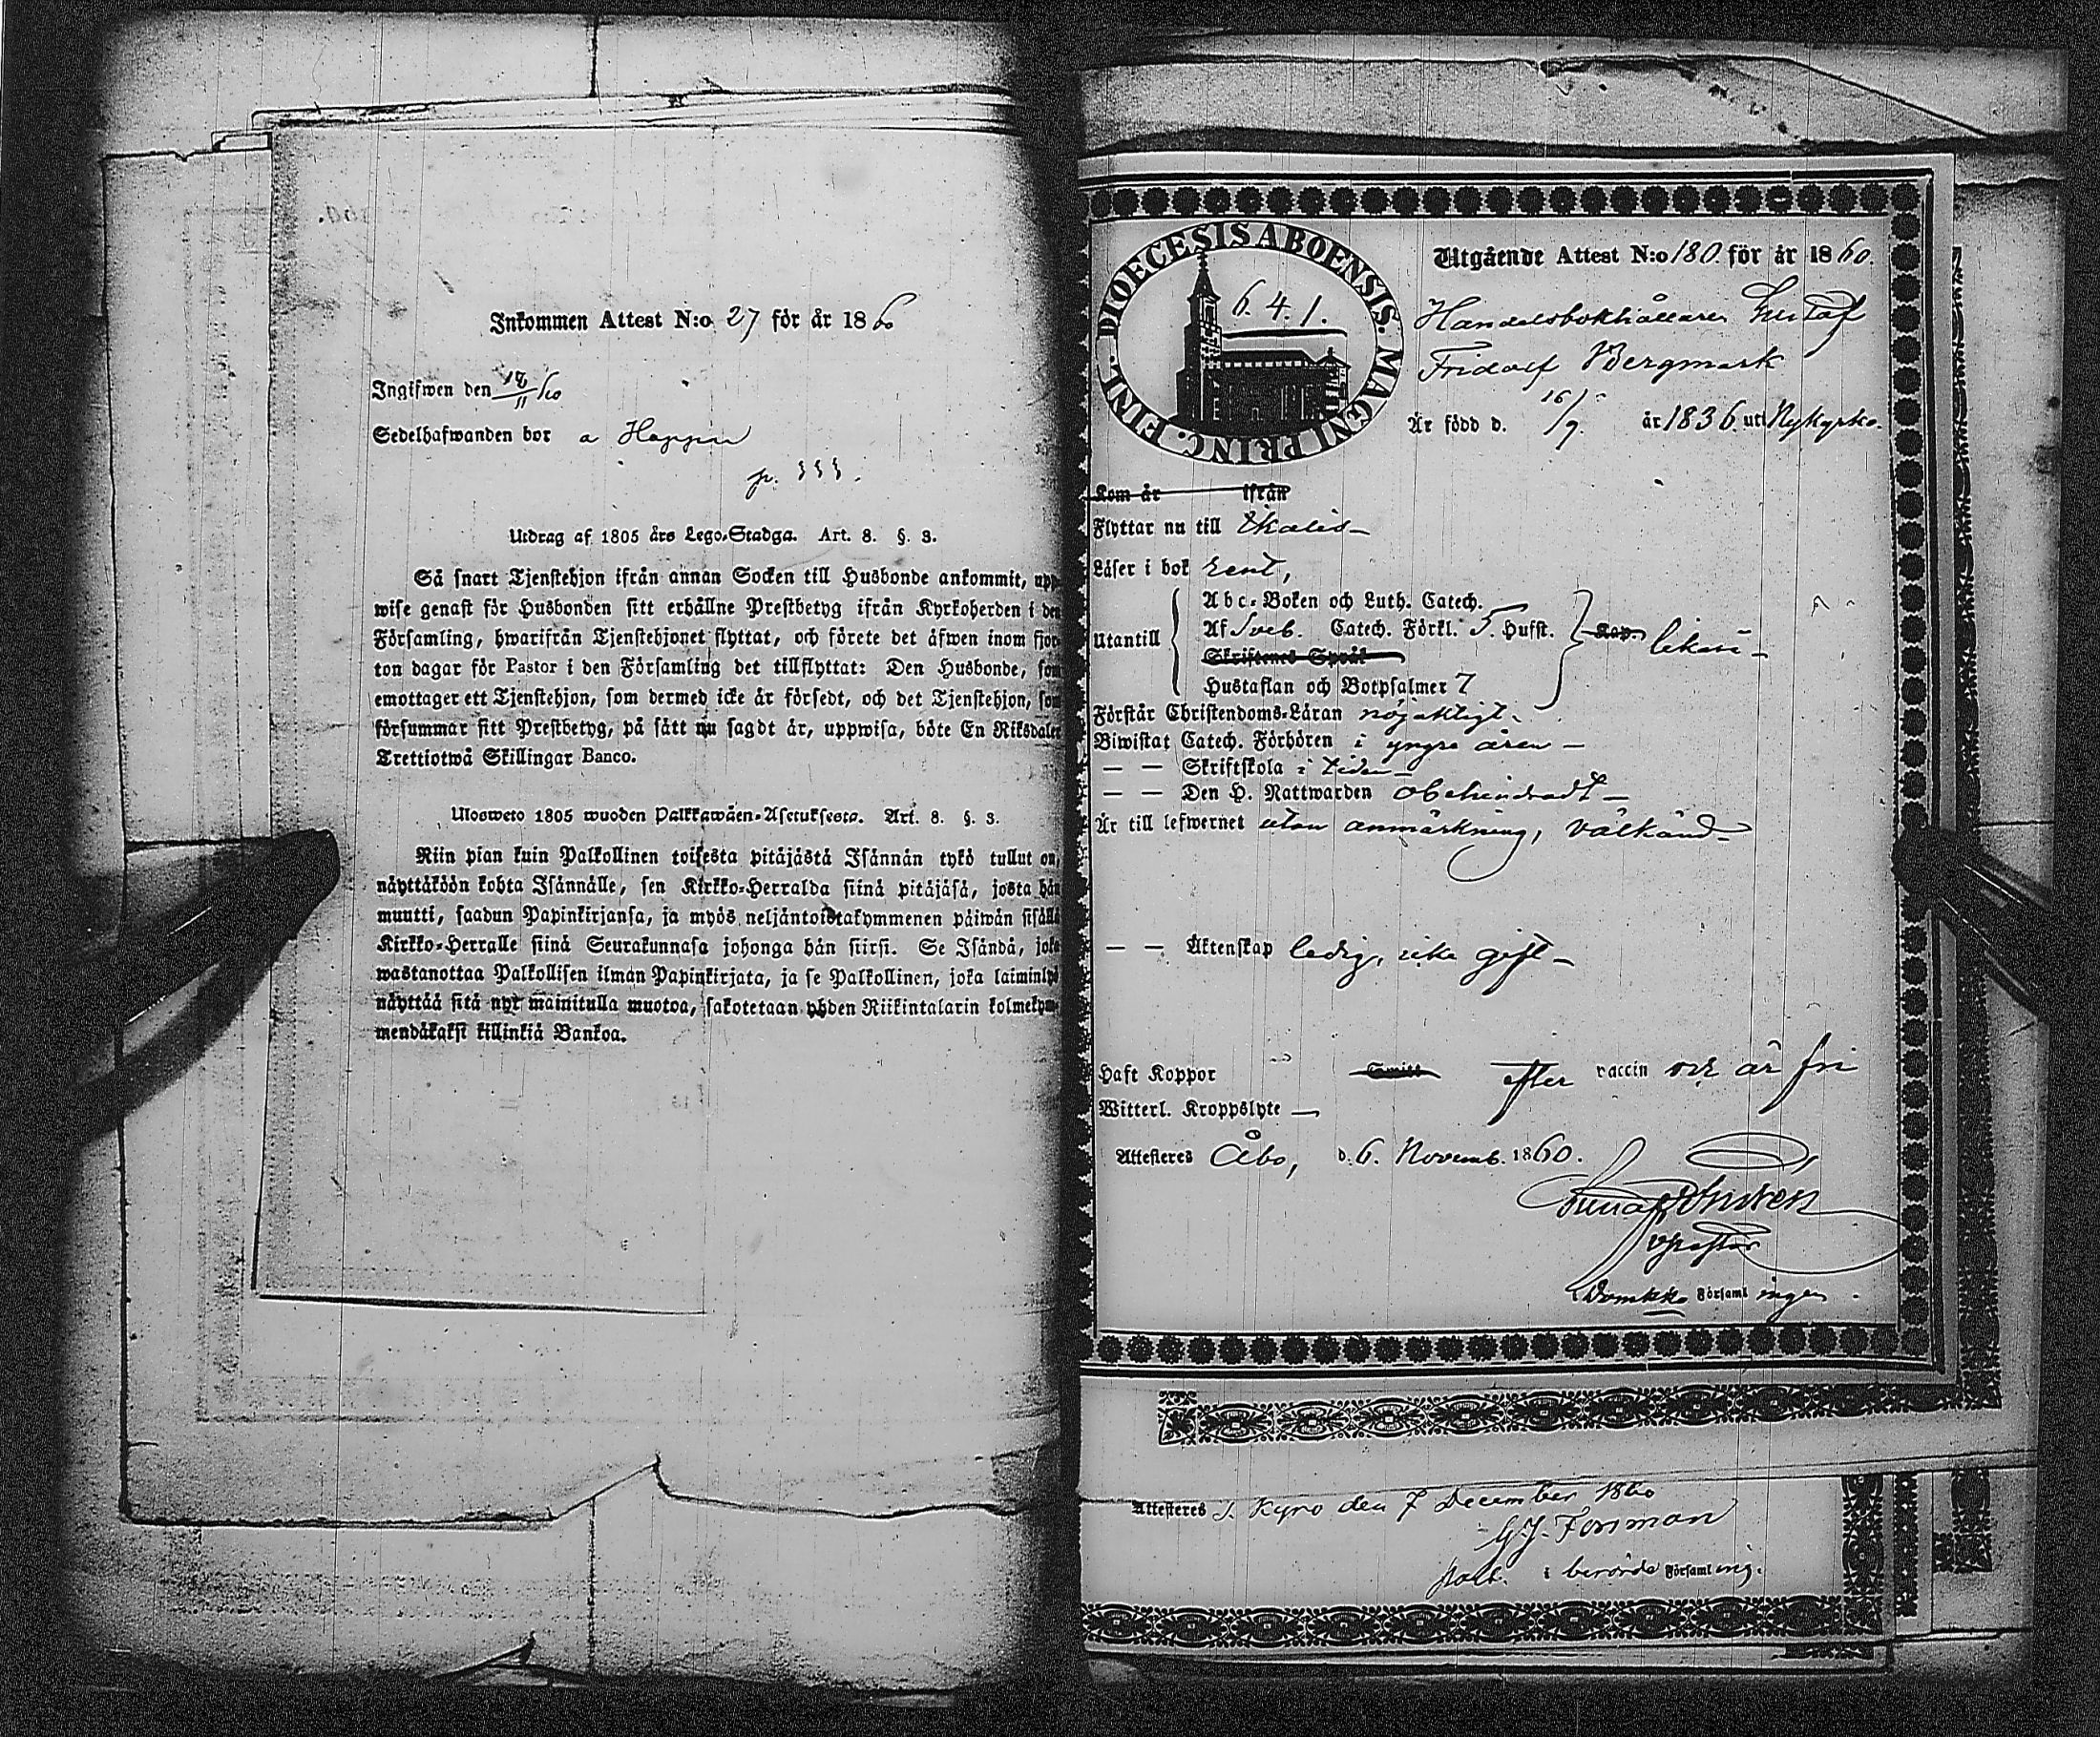 Inkommen Attest N:o 27 för år 1860
Ingifwen den 18/11 60
Sedelhafwanden bor a
p. 333.
Utdrag af 1805 års Lego-Stadga. Art. 8. §. 3.
Så snart Tjenstehjon ifrån annan Socken till Husbonde ankommit, upp-
wise genast för Husbonden sitt erhållne Prestbetyg ifrån Kyrkoherden i den
Församling, hwarifrån Tjenstehjonet flyttat, och förete det äfwen inom fjor-
ton dagar för Pastor i den Församling det tillflyttat: Den Husbonde, som
emottager ett Tjenstehjon, som dermed icke är försedt, och det Tjenstehjon, som
försummar sitt Prestbetyg, på sätt nu sagdt är, uppwisa, böte En Riksdaler
Trettiotwå Skillingar Banco.
Ulosweto 1805 wuoden Palkkawäen-Asetuksesta. Art. 8. §. 3.
Niin pian kuin Palkollinen toisesta pitäjästä Isännän tykö tullut on,
näyttäköön kohta Isännälle, sen Kirkko-Herralda siinä pitäjäsä, josta hän
muutti, saadun Papinkirjansa, ja myös neljäntoistakymmenen päiwän sisällä
Kirkko-Herralle siinä Seurakunnasa johonga hän siirsi. Se Isändä, joka
wastanottaa Palkollisen ilman Papinkirjata, ja se Palkollinen, joka laiminlyö
näyttää sitä nyt mainitulla muotoa, sakotetaan yhden Riikintalarin kolmekym-
mendäkaksi killinkiä Bankoa.
DIOECESIS ABOENSIS. MAGNI PRINC. FINL.
6. 4. 1.
Utgående Attest N:o 180 för år 1860.
Handelsbokhållaren Gustaf
Fridolf Bergmark
Är född d. 16/9. år 1836. utI Nykyrko.
Kom år ifrån
Flyttar nu till Ikalis
Läser i bok rent,
Utantill
Abc-Boken och Luth. Catech.
Af Sveb. Catech. Förkl. 5. Hufst.
Skriftenes Språk
Hustaflan och Botpsalmer 7
Kap. likaså
Förstår Christendoms-Läran nöjaktigt
Biwistat Catech. Förhören i yngre åren
— — Skriftskola i tiden
— — Den H. Nattwarden obehindradt
Är till lefwernet utan anmärkning, välkänd
— — Äktenskap ledig, icke gift
Haft Koppor efter vaccin och är fri
Witterl. Kroppslyte —
Attesteres Åbo, d. 6. Novemb. 1860.
v pastor
Domk:ko Församlingen.
Attesteres i Kyro den 7 December 1860
G J. Forsman
past. i berörde Församling.